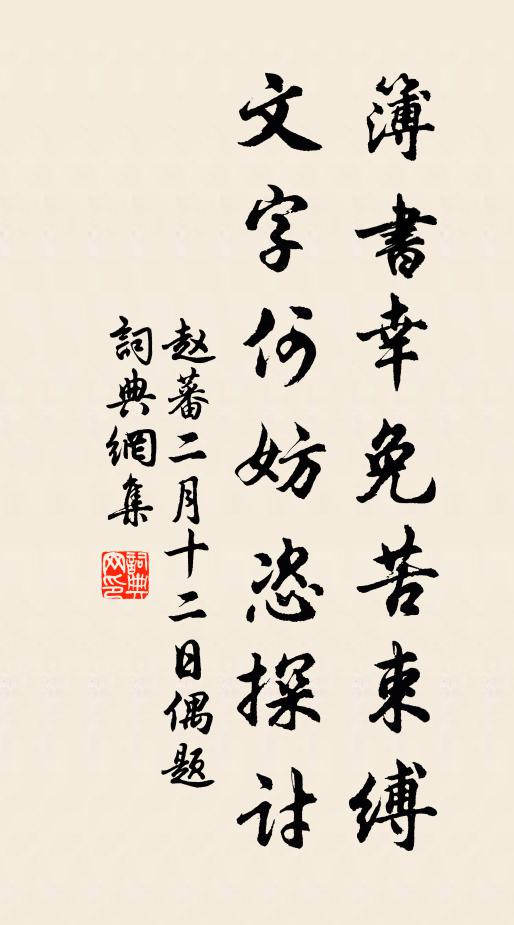 簿書幸免苦束縛
文字何妨恣探討
赵蕃二月十二日偶题
詞典網集
詞典网印